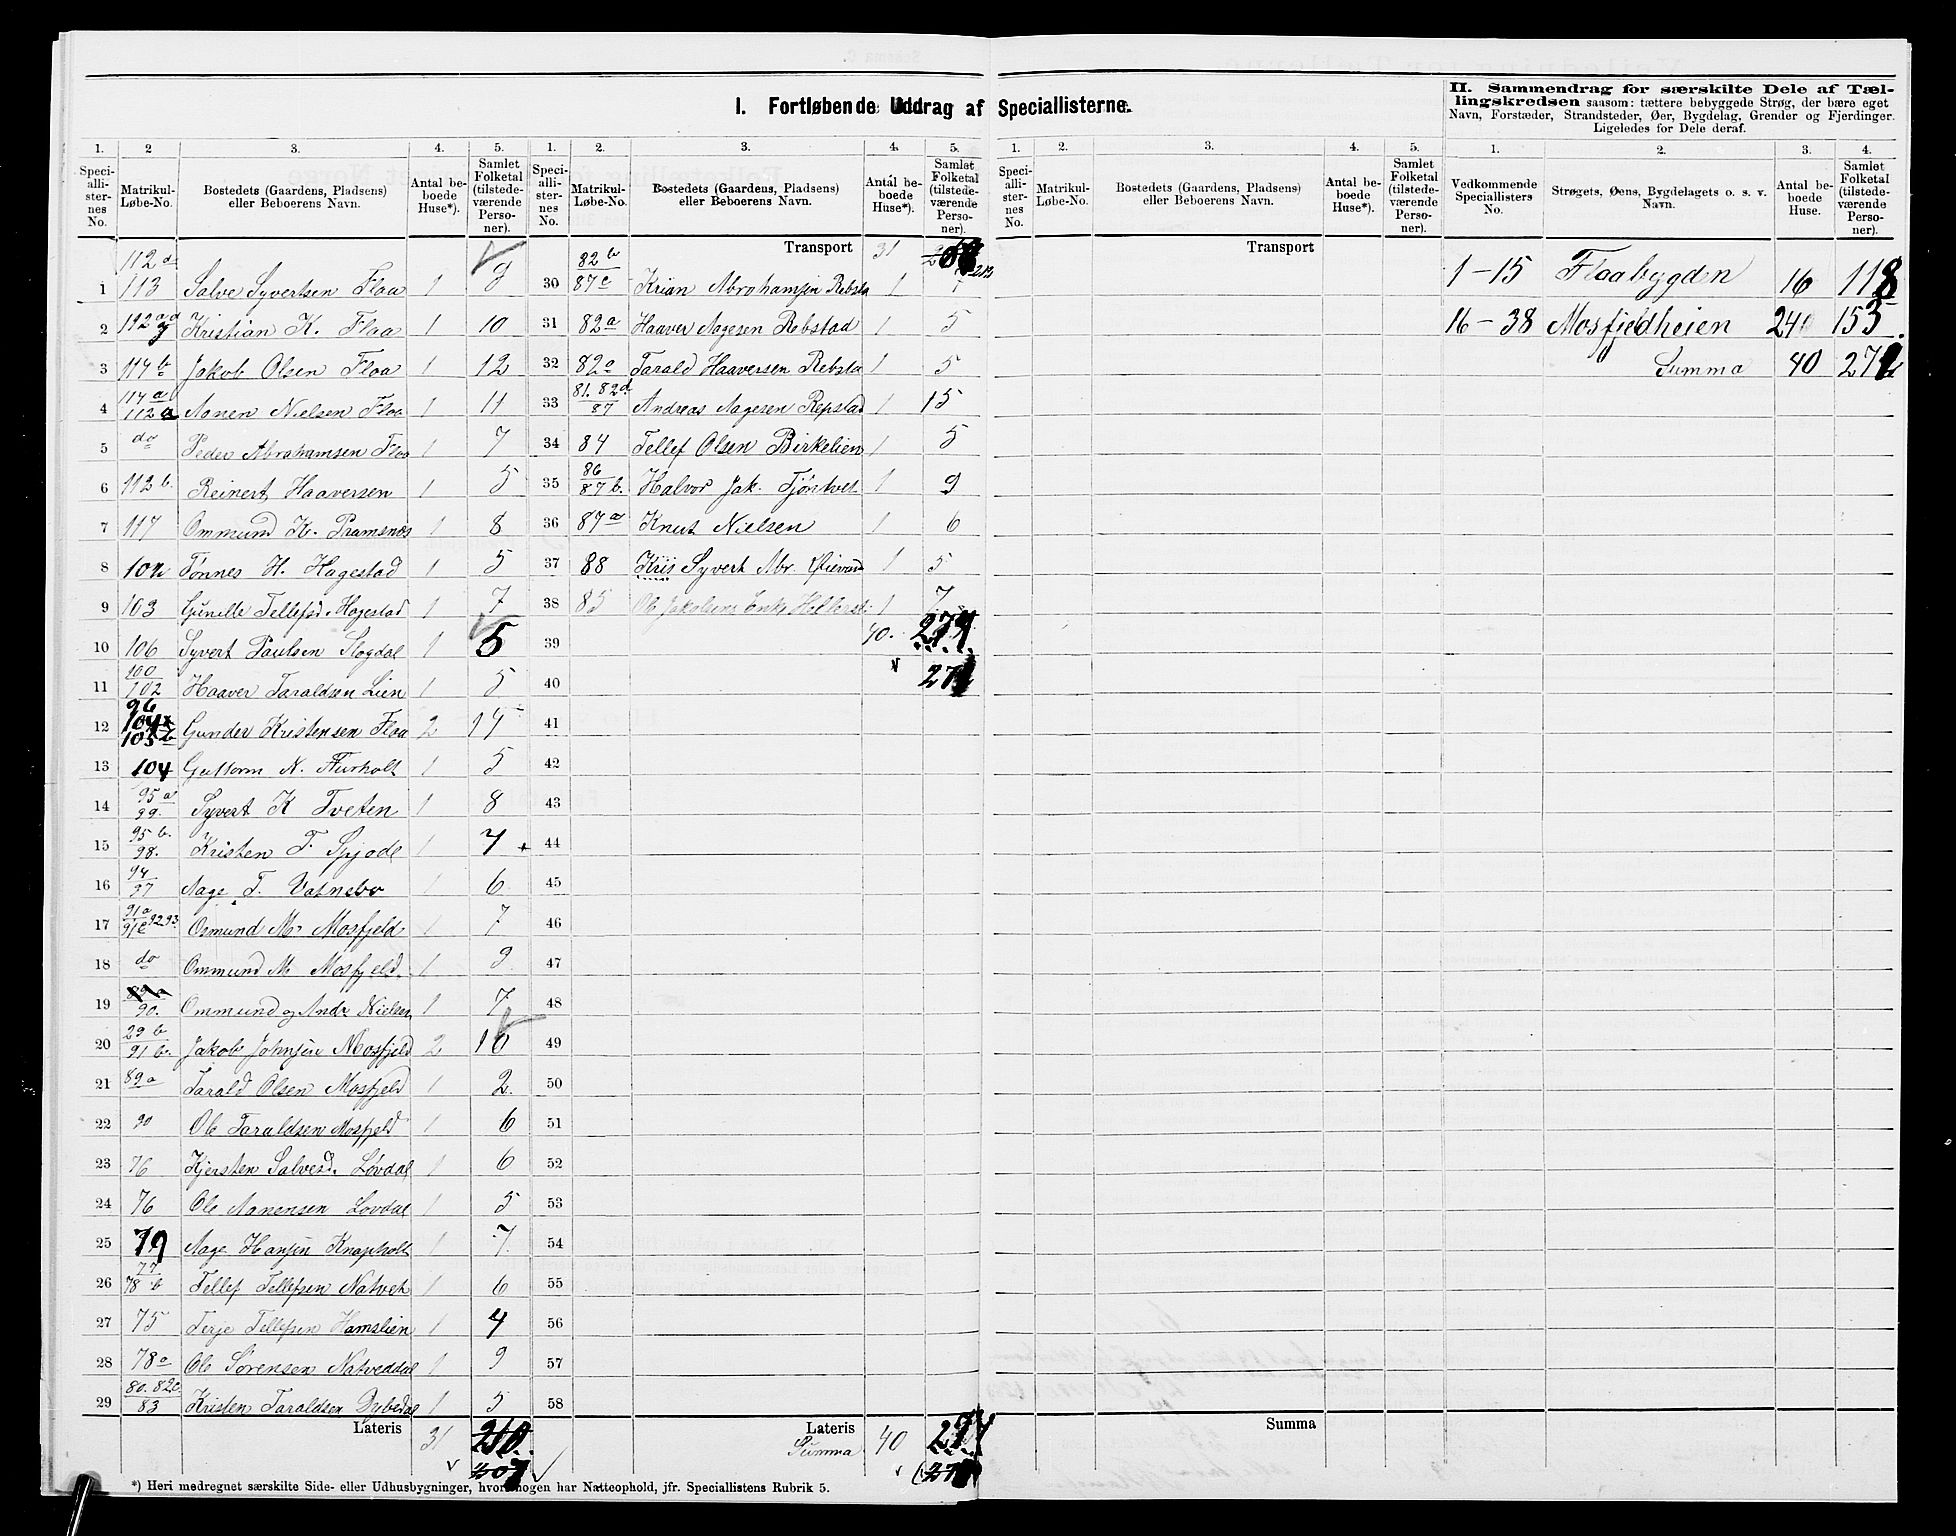 I. Fortløbende Uddrag af Speciallisterne.
II. Sammendrag for særskilte Dele af Tællingskredsen saasom: tættere bebyggede Strøg, der bære eget Navn, Forstæder, Strandsteder, Øer, Bygdelag, Grender og Fjerdinger. Ligeledes for Dele deraf.
1. 2 3. 4. 5. 1. 2. 3. 4. 5. 1. 2. 3. 4. 5. 1. 2. 3. 4.
Speciallisternes No. Matrikul-Løbe-No. Bostedets (Gaardens, Pladsens) eller Beboerens Navn. Antal beboede Huse*). Samlet Folketal (tilstedeværende Personer).
Speciallisternes No. Matrikul-Løbe-No. Bostedets (Gaardens, Pladsens) eller Beboerens Navn. Antal beboede Huse*). Samlet Folketal (tilstedeværende Personer).
Speciallisternes No. Matrikul-Løbe-No. Bostedets (Gaardens, Pladsens) eller Beboerens Navn. Antal beboede Huse*). Samlet Folketal (tilstedeværende Personer).
Vedkommende Speciallisters No. Strøgets, Øens, Bygdelagets o. s. v. Navn. Antal beboede Huse. Samlet Folketal (tilstedeværende Personer).
1 112 d 113 Salve Syvertsen Flaa 1 9
2 Kristian K. Flaa 1 10
3 114 b Jakob Olsen Flaa 1 12
4 114 a 112 a Aanen Nielsen Flaa 1 11
5 do Peder Abrahamsen Flaa 1 7
6 112 b. Reinert Haaversen 1 5
7 117 Ommund K. Pramsnæs 1 8
8 Tønnes H. Hagestad 1 5
9 103 Gunille Tellefsd. Hagestad 1 7
10 106 Syvert Paulsen Slogdal 1 5
11 100 102 Haaver Taraldsen Lien 1 5
12 96 105 b Gunder Kristensen Flaa 2 14
13 104 Guttorm N. Furholt 1 5
14 95 a 99. Syvert K Tveten 1 8
15 95 b. 98. Kristen T. 1 7
16 94 97 Aage T. Vatnebo 1 6
17 91 a 91 c 92 93. Osmund M. Mosfjeld 1 7
18 do Ommund M Mosfjeld. 1 9
19 90. Ommund og Andr Nielsen 1 7
20 29 b 91 b. Jakob Johnsen Mosfjeld 2 10
21 89 a Tarald Olsen Mosfjeld 1 2.
22 90 Ole Taraldsen Mosfjeld 1 6
23 76 Kjersten Salvesd. Løvdal 1 6
24 76 Ole Aanensen Løvdal 1 5
25 79 Aage Hansen Knapholt 1 7
26 77 78 b Tellef Tellefsen Natvet 1 6
27 75 Terje Tellefsen Hamslien 1 4
28 78 a Ole Sørensen Natveddal 1 9
29 80. 82 c 83 Kristen Taraldsen Dybedal 1 5
Lateris 31 210. 207
Transport 31
30 82 b 87 c Krian Abrahamsen Rebsta 1
31 82 a Haaver Aagesen Rebstad 1 5
32 82 a Tarald Haaversen Rebsta 1 5
33 81. 82 d. 87 Andreas Aagesen Repstad 1 15
34 84 Tellef Olsen Birkelien 1 5
35 86 87 b. Halvor Jak. Tjøntvet 1 9
36 87 a Knut Nielsen 1 6
37 88 Kris Syvert Abr. 1 5
38 85 Ole Jakobsens Enke 1 7
39 40.
40
41
42
43
44
45
46
47
48
49
50
51
52
53
54
55
56
57
58
Lateris
Summa 40
Transport
Summa
1-15 Flaabygden 16 118
16-38 Mosfjeldheien 24 153.
Summa 40 271
*) Heri medregnet særskilte Side- eller Udhusbygninger, hvori nogen har Natteophold, jfr. Speciallistens Rubrik 5.